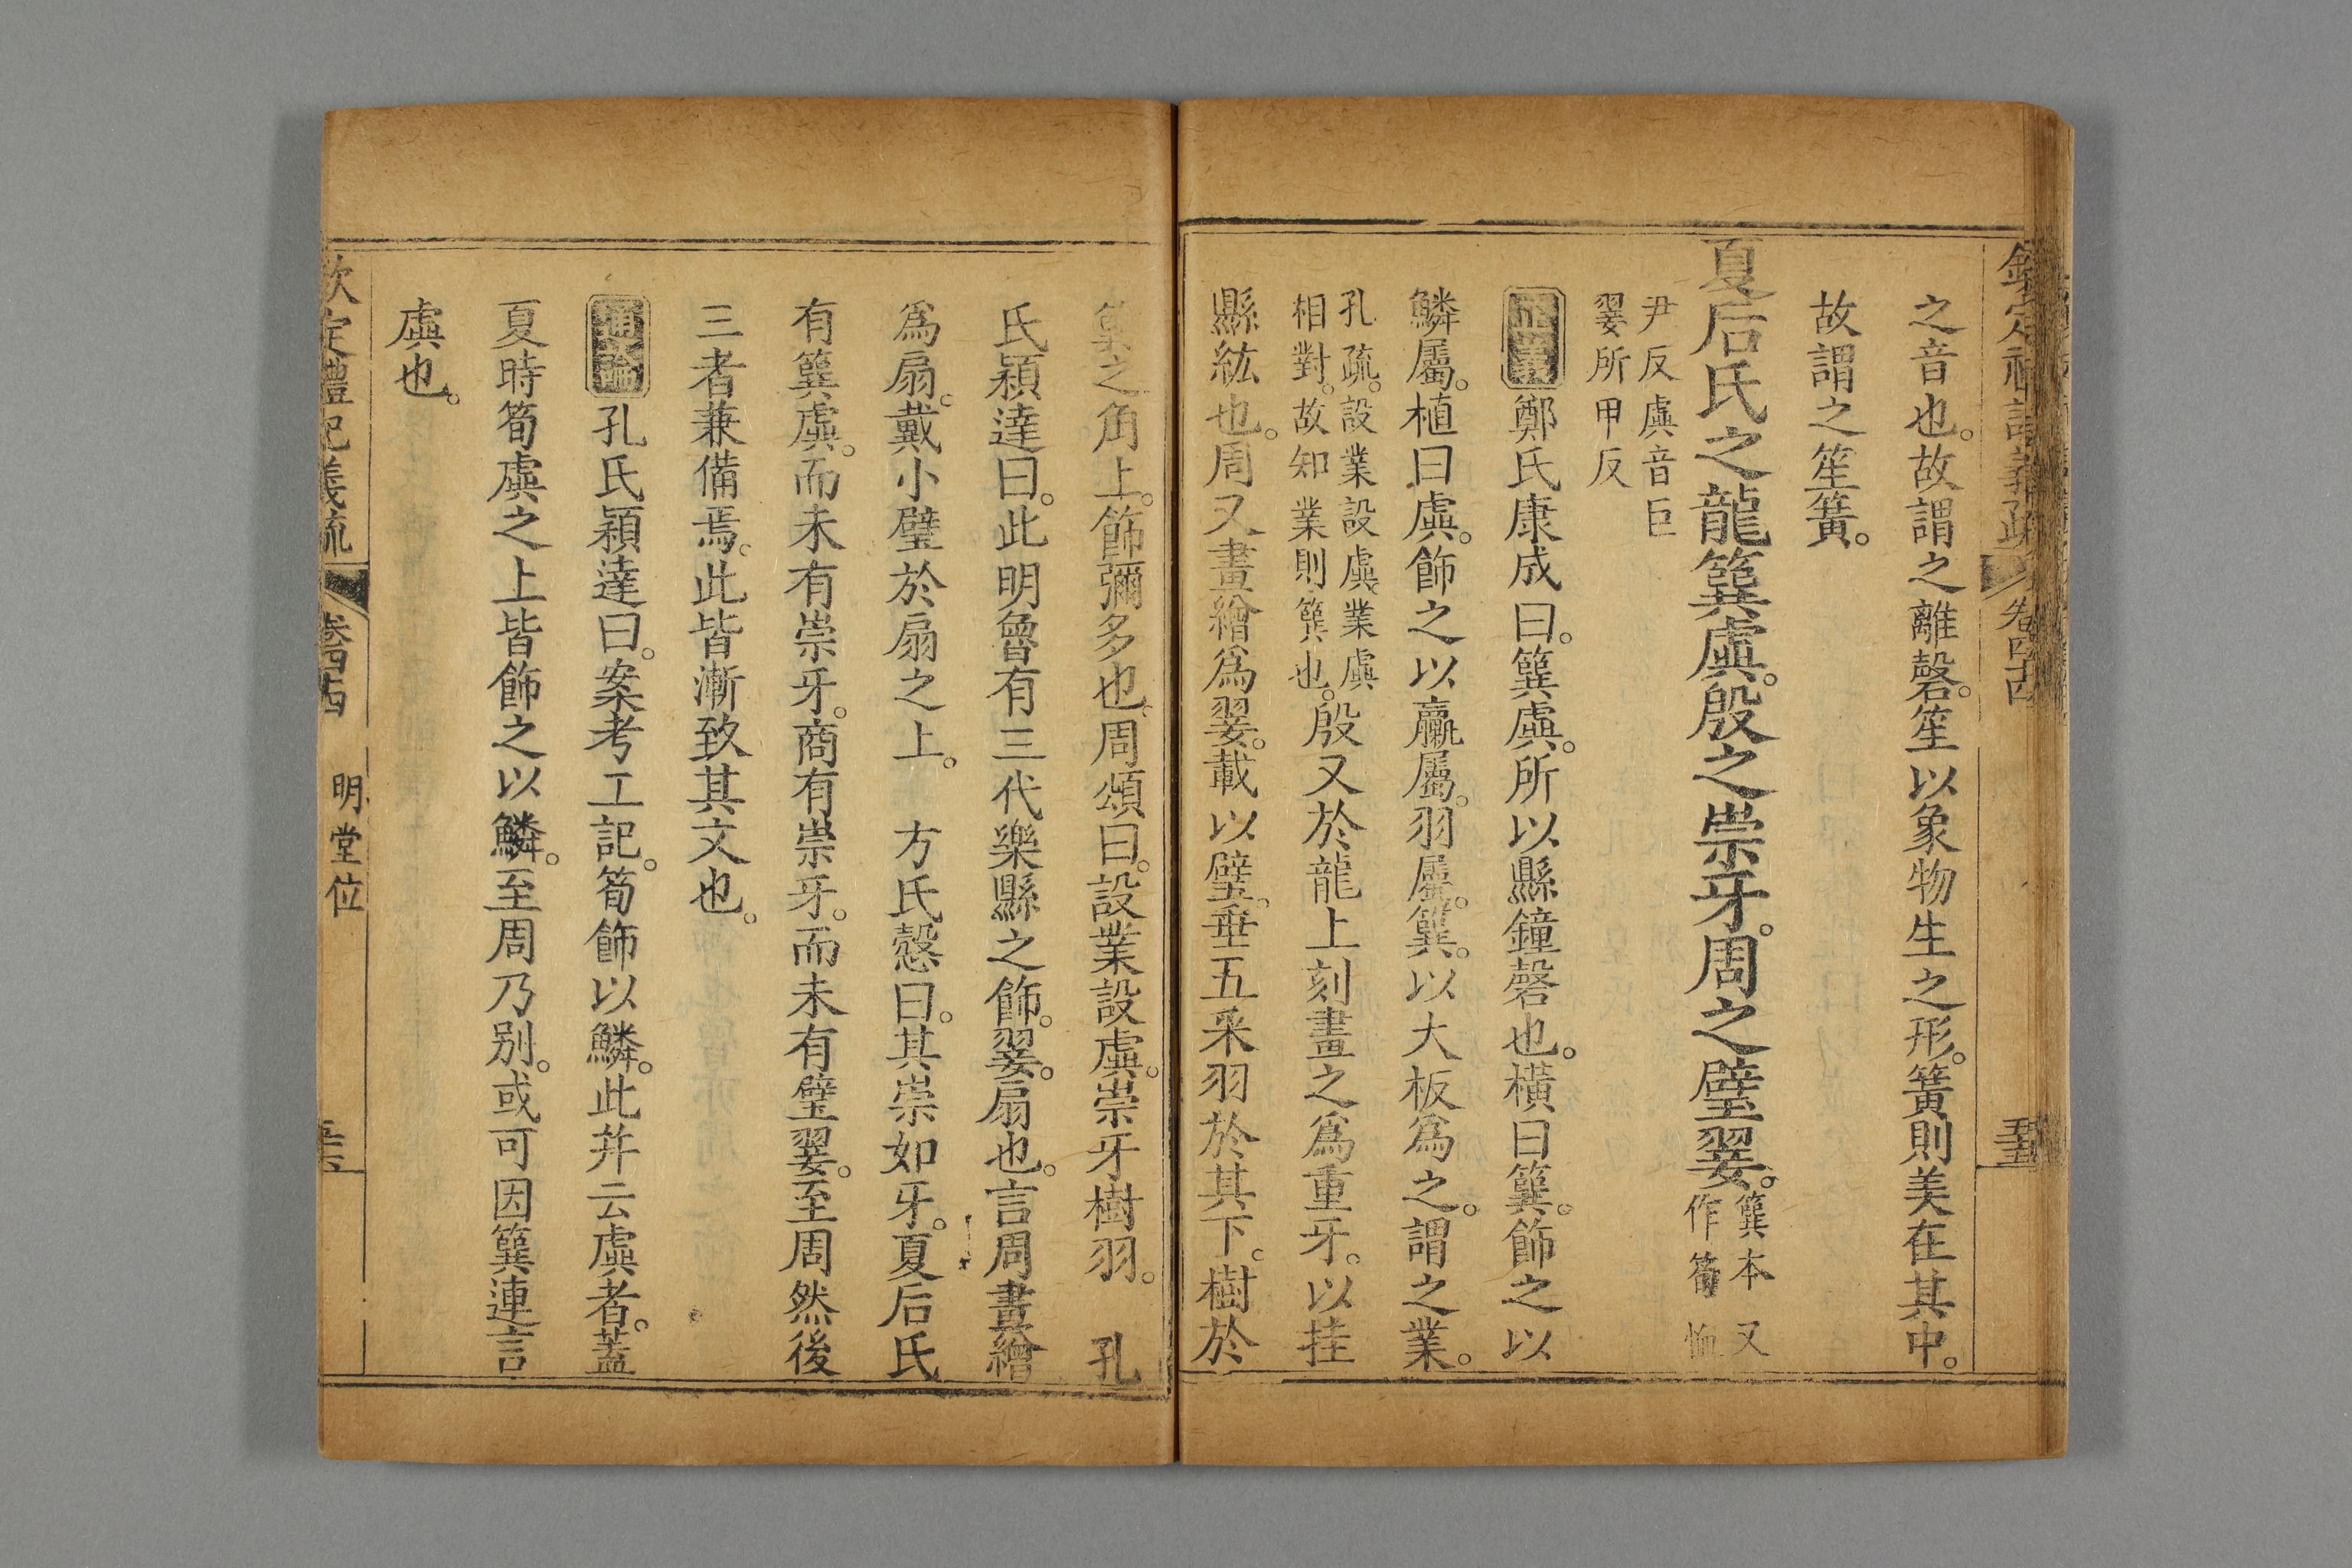 之音也。故謂之離磬。笙以象物生之形。簧則美在其中。
故謂之笙簧。
夏后氏之龍簨虡。殷之崇牙。周之璧翣。簨本又作筍恤
尹反虡音巨翣所甲反
正義鄭氏康成曰。簨虡。所以縣鐘磬也。橫曰簨。飾之以
鱗屬。植曰虡。飾之以臝屬。羽屬。簨。以大板爲之。謂之業。
孔疏。設業設虡。業虡相對。故知業則簨也。殷又於龍上刻畫之爲重牙。以挂
縣紘也。周又畫繒爲翣。載以璧。垂五采羽於其下。樹於
簨之角上。飾彌多也。周頌曰。設業設虡。崇牙樹羽。 孔
氏穎達曰。此明魯有三代樂縣之飾。翣。扇也。言周畫繒
爲扇。戴小璧於扇之上。 方氏慤曰。其崇如牙。夏后氏
有簨虡。而未有崇牙。商有崇牙。而未有璧翣。至周然後
三者兼備焉。此皆漸致其文也。
通論孔氏穎達曰。案考工記。筍飾以鱗。此并云虡者。蓋
夏時筍虡之上皆飾之以鱗。至周乃别。或可因簨連言
虡也。
欽定禮記義疏 卷四十四 明堂位